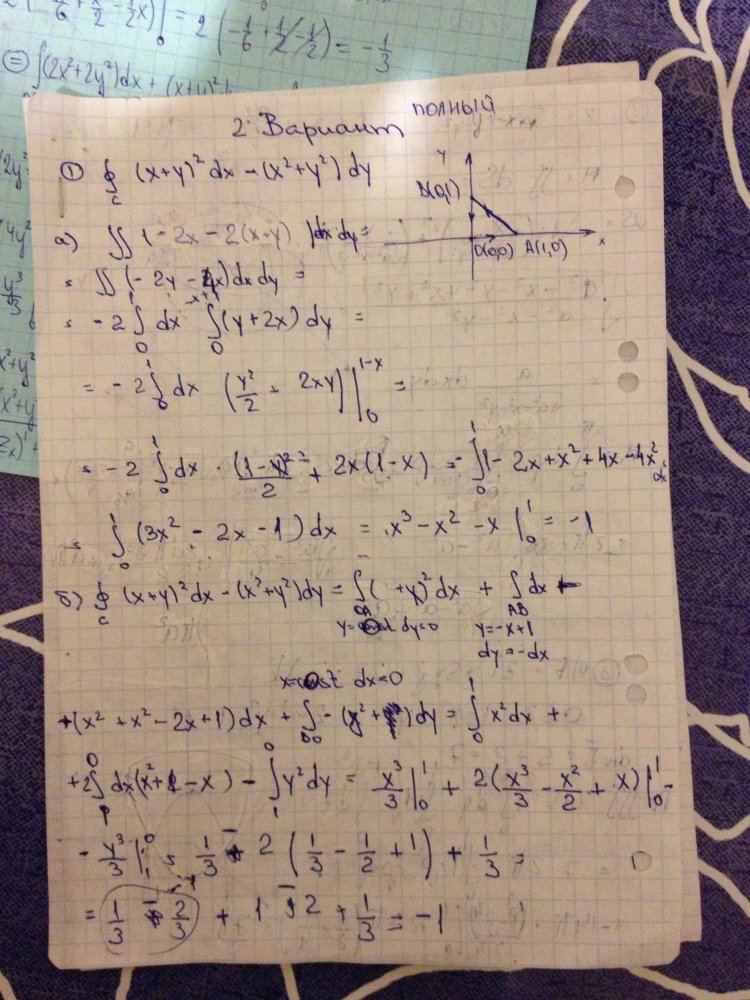 2(-1/6 + 1/2 - 1/2) = -1/3
∫(2x²+2y²)dx + (x+y)²
полный
2 Вариант
① ∮c (x+y)² dx - (x²+y²) dy
y
B(0,1)
O(0,0) A(1,0) x
а) ∬ (-2x - 2(x+y)) dx dy =
= ∬ (-2y - 4x) dx dy =
= -2 ∫₀¹ dx ∫₀^(-x+1) (y+2x) dy =
= -2 ∫₀¹ dx (y²/2 + 2xy) |₀^(1-x) =
= -2 ∫₀¹ dx · (1-x)²/2 + 2x(1-x) = -∫₀¹ 1 - 2x + x² + 4x - 4x² dx
= ∫₀¹ (3x² - 2x - 1) dx = x³ - x² - x |₀¹ = -1
б) ∮c (x+y)² dx - (x²+y²) dy = ∫OA ( +y)² dx + ∫AB dx +
y=0 dy=0 y=-x+1
dy=-dx
x=0 dx=0
+(x² + x² - 2x + 1) dx + ∫BO -(y²+ ) dy = ∫₀¹ x² dx +
+2∫₁⁰ dx(x²+1-x) - ∫₁⁰ y² dy = x³/3 |₀¹ + 2(x³/3 - x²/2 + x)|₀¹ -
- y³/3 |₁⁰ = 1/3 - 2(1/3 - 1/2 + 1) + 1/3 =
= 1/3 - 2/3 + 1 - 2 + 1/3 = -1